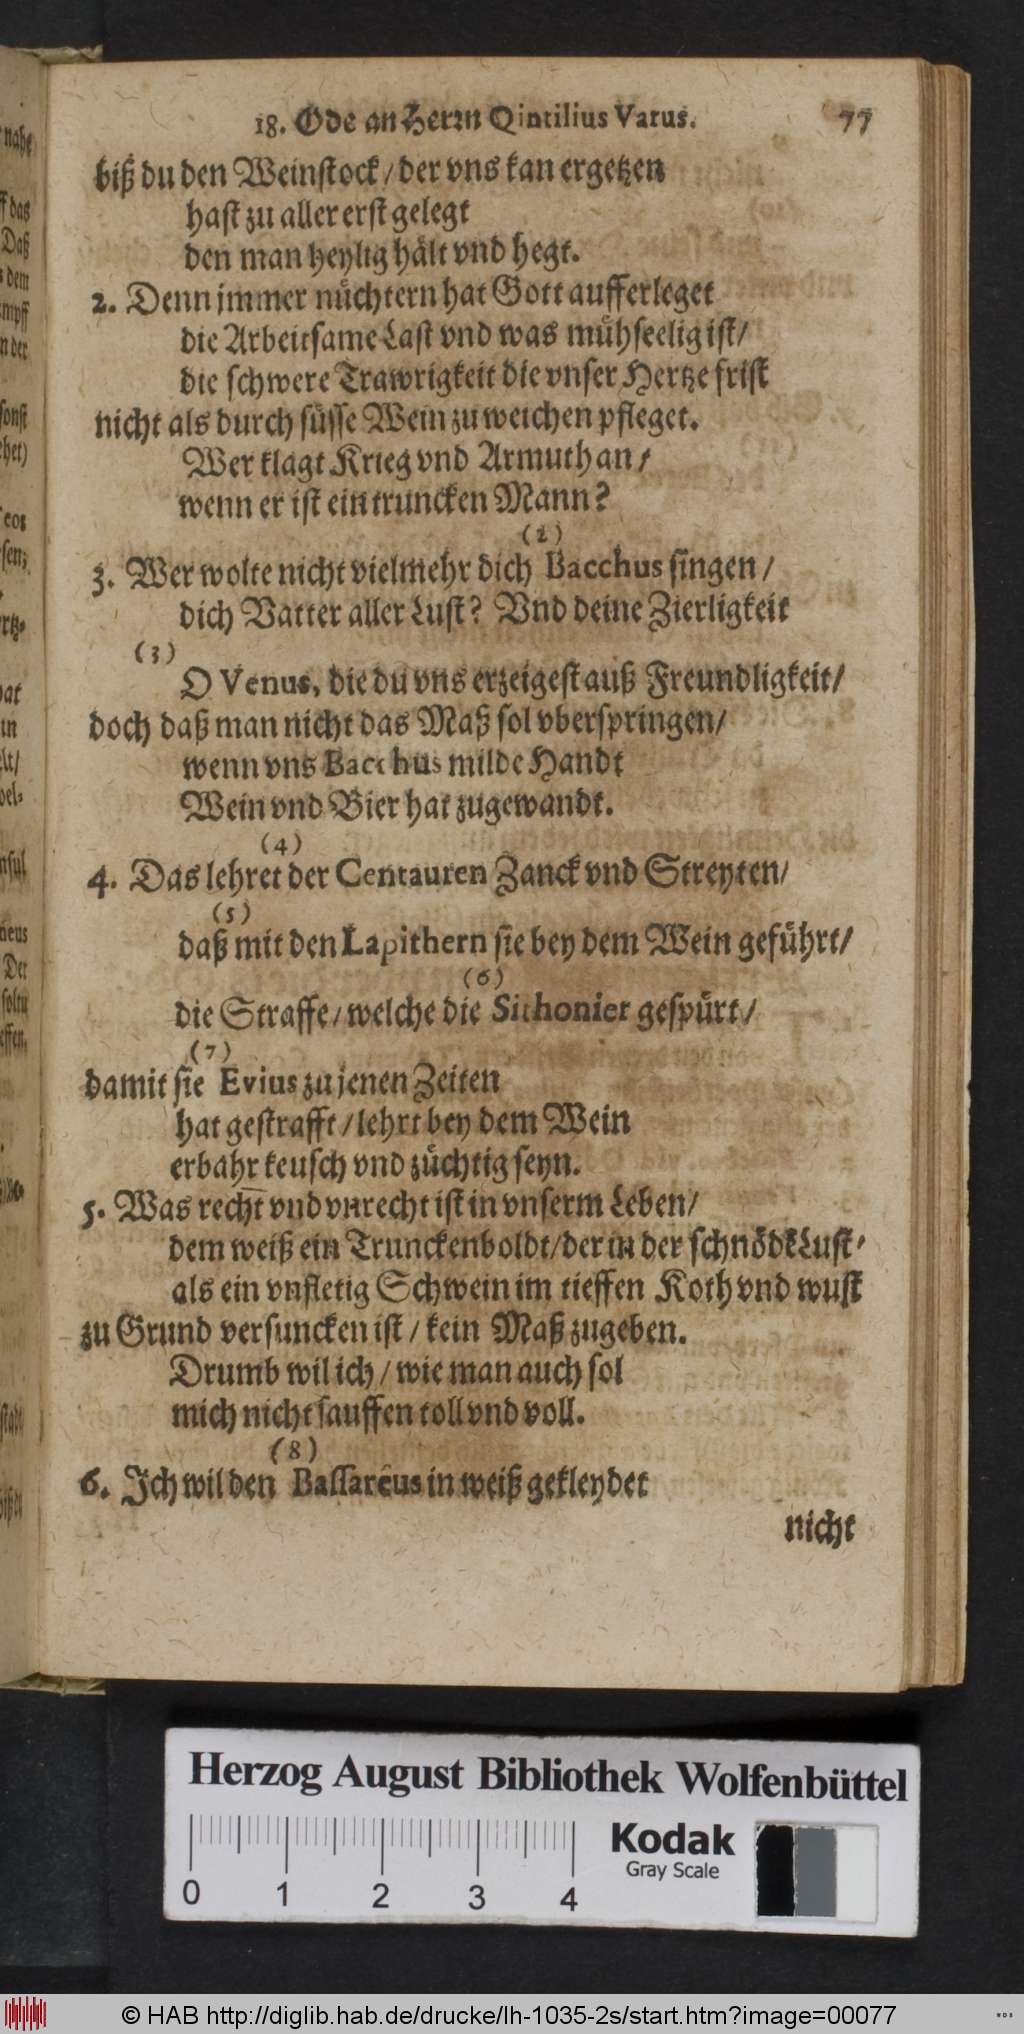 18. Ode an Herrn Qintilius Varus. 77
biß du den Weinstock / der vns kan ergetzen
hast zu aller erst gelegt
den man heylig hält vnd hegt.
2. Denn jmmer nüchtern hat Gott aufferleget
die Arbeitsame Last vnd was mühseelig ist /
die schwere Trawrigkeit die vnser Hertze frist
nicht als durch süsse Wein zu weichen pfleget.
Wer klagt Krieg vnd Armuth an /
wenn er ist ein truncken Mann?
(2)
3. Wer wolte nicht vielmehr dich Bacchus singen /
dich Vatter aller Lust? Vnd deine Zierligkeit
(3)
O Venus, die du vns erzeigest auß Freundligkeit /
doch daß man nicht das Maß sol vberspringen /
wenn vns Bacchus milde Handt
Wein vnd Bier hat zugewandt.
(4)
4. Das lehret der Centauren Zanck vnd Streyten /
(5)
daß mit den Lapithern sie bey dem Wein geführt /
(6)
die Straffe / welche die Sithonier gespürt /
(7)
damit sie Evius zu jenen Zeiten
hat gestrafft / lehrt bey dem Wein
erbahr keusch vnd züchtig seyn.
5. Was recht vnd vnrecht ist in vnserm Leben /
dem weiß ein Trunckenboldt / der in der schnödẽ Lust /
als ein vnfletig Schwein im tieffen Koth vnd wust
zu Grund versuncken ist / kein Maß zugeben.
Drumb wil ich / wie man auch sol
mich nicht sauffen toll vnd voll.
(8)
6. Ich wil den Bassareus in weiß gekleydet
nicht
nahe
das
Daß
dem
mpff
n der
sonst
sen;
hat
in
nsul
neus
Der
soltu
Herzog August Bibliothek Wolfenbüttel
Kodak
Gray Scale
0 1 2 3 4
© HAB http://diglib.hab.de/drucke/lh-1035-2s/start.htm?image=00077